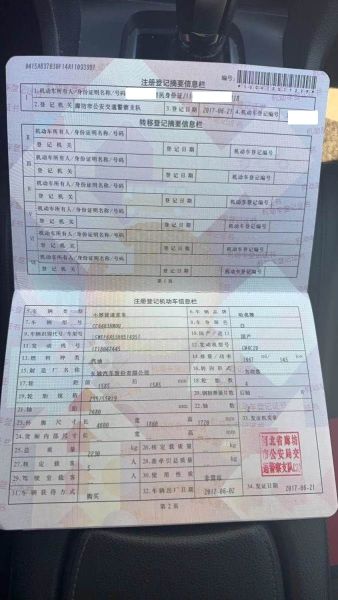 注册登记摘要信息栏
编号:
1.机动车所有人/身份证明名称/号码 居民身份证/
2.登记机关 廊坊市公安交通警察支队 3.登记日期 2017-06-21 4.机动车登记编号
转移登记摘要信息栏
II 机动车所有人/身份证明名称/号码
登记机关 登记日期 机动车登记编号
III 机动车所有人/身份证明名称/号码
登记机关 登记日期 机动车登记编号
IV 机动车所有人/身份证明名称/号码
登记机关 登记日期 机动车登记编号
V 机动车所有人/身份证明名称/号码
登记机关 登记日期 机动车登记编号
VI 机动车所有人/身份证明名称/号码
登记机关 登记日期 机动车登记编号
VII 机动车所有人/身份证明名称/号码
登记机关 登记日期 机动车登记编号
第1页
注册登记机动车信息栏
5.车辆类型 小型普通客车 6.车辆品牌 哈弗牌
7.车辆型号 8.车身颜色 白
9.车辆识别代号/车架号 10.国产/进口 国产
11.发动机号 12.发动机型号 GW4C20
13.燃料种类 汽油 14.排量/功率 1967 ml/ 145 kw
15.制造厂名称 长城汽车股份有限公司 16.转向形式 方向盘
17.轮距 前 1585 后 1585 mm 18.轮胎数 4
19.轮胎规格 235/55R19 20.钢板弹簧片数 后轴
21.轴距 2680 mm 22.轴数 2
23.外廓尺寸 长 宽 1860 高 1720 mm
24.货厢内部尺寸 长 宽 高 mm
25.总质量 2230 kg 26.核定载质量 kg
27.核定载客 5 人 28.准牵引总质量 kg
29.驾驶室载客 人 30.使用性质 非营运
31.车辆获得方式 购买 32.车辆出厂日期 2017-06-02
33.发证机关章
河北省廊坊
市公安局交
通警察支队
34.发证日期 2017-06-21
第2页